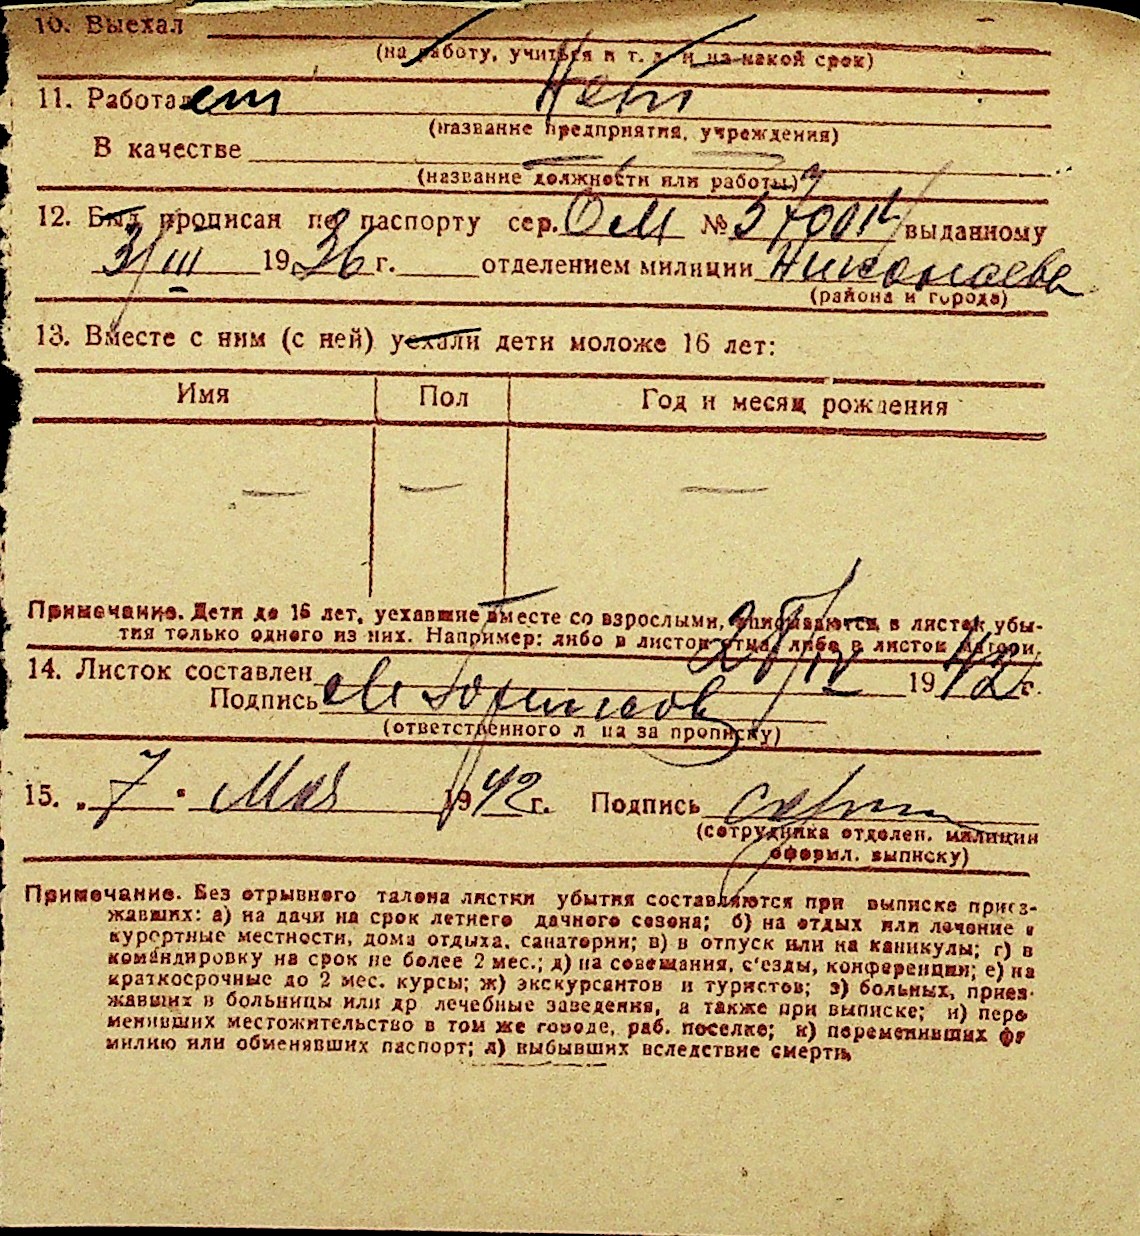 10. Выехал
(на работу, учиться и т. д. и на какой срок)
11. Работает Нет
(название предприятия, учреждения)
В качестве
(название должности или работы)
12. Был прописан по паспорту сер. ОМ № выданному
3/III 1936 г. отделением милиции Николаева
(района и города)
13. Вместе с ним (с ней) уехали дети моложе 16 лет:
Имя Пол Год и месяц рождения
— — —
Примечание. Дети до 16 лет, уехавшие вместе со взрослыми, вписываются в листок убы-
тия только одного из них. Например: либо в листок отца, либо в листок матери.
14. Листок составлен 28/IV 1942 г.
Подпись
(ответственного лица за прописку)
15. „7" Мая 1942 г. Подпись
(сотрудника отделен. милиции
оформл. выписку)
Примечание. Без отрывного талона листки убытия составляются при выписке приез-
жавших: а) на дачи на срок летнего дачного сезона; б) на отдых или лечение в
курортные местности, дома отдыха, санатории; в) в отпуск или на каникулы; г) в
командировку на срок не более 2 мес.; д) на совещания, с'езды, конференции; е) на
краткосрочные до 2 мес. курсы; ж) экскурсантов и туристов; з) больных, приез-
жавших в больницы или др лечебные заведения, а также при выписке; и) пере
менивших местожительство в том же городе, раб. поселке; к) переменивших фа
милию или обменявших паспорт; л) выбывших вследствие смерти.